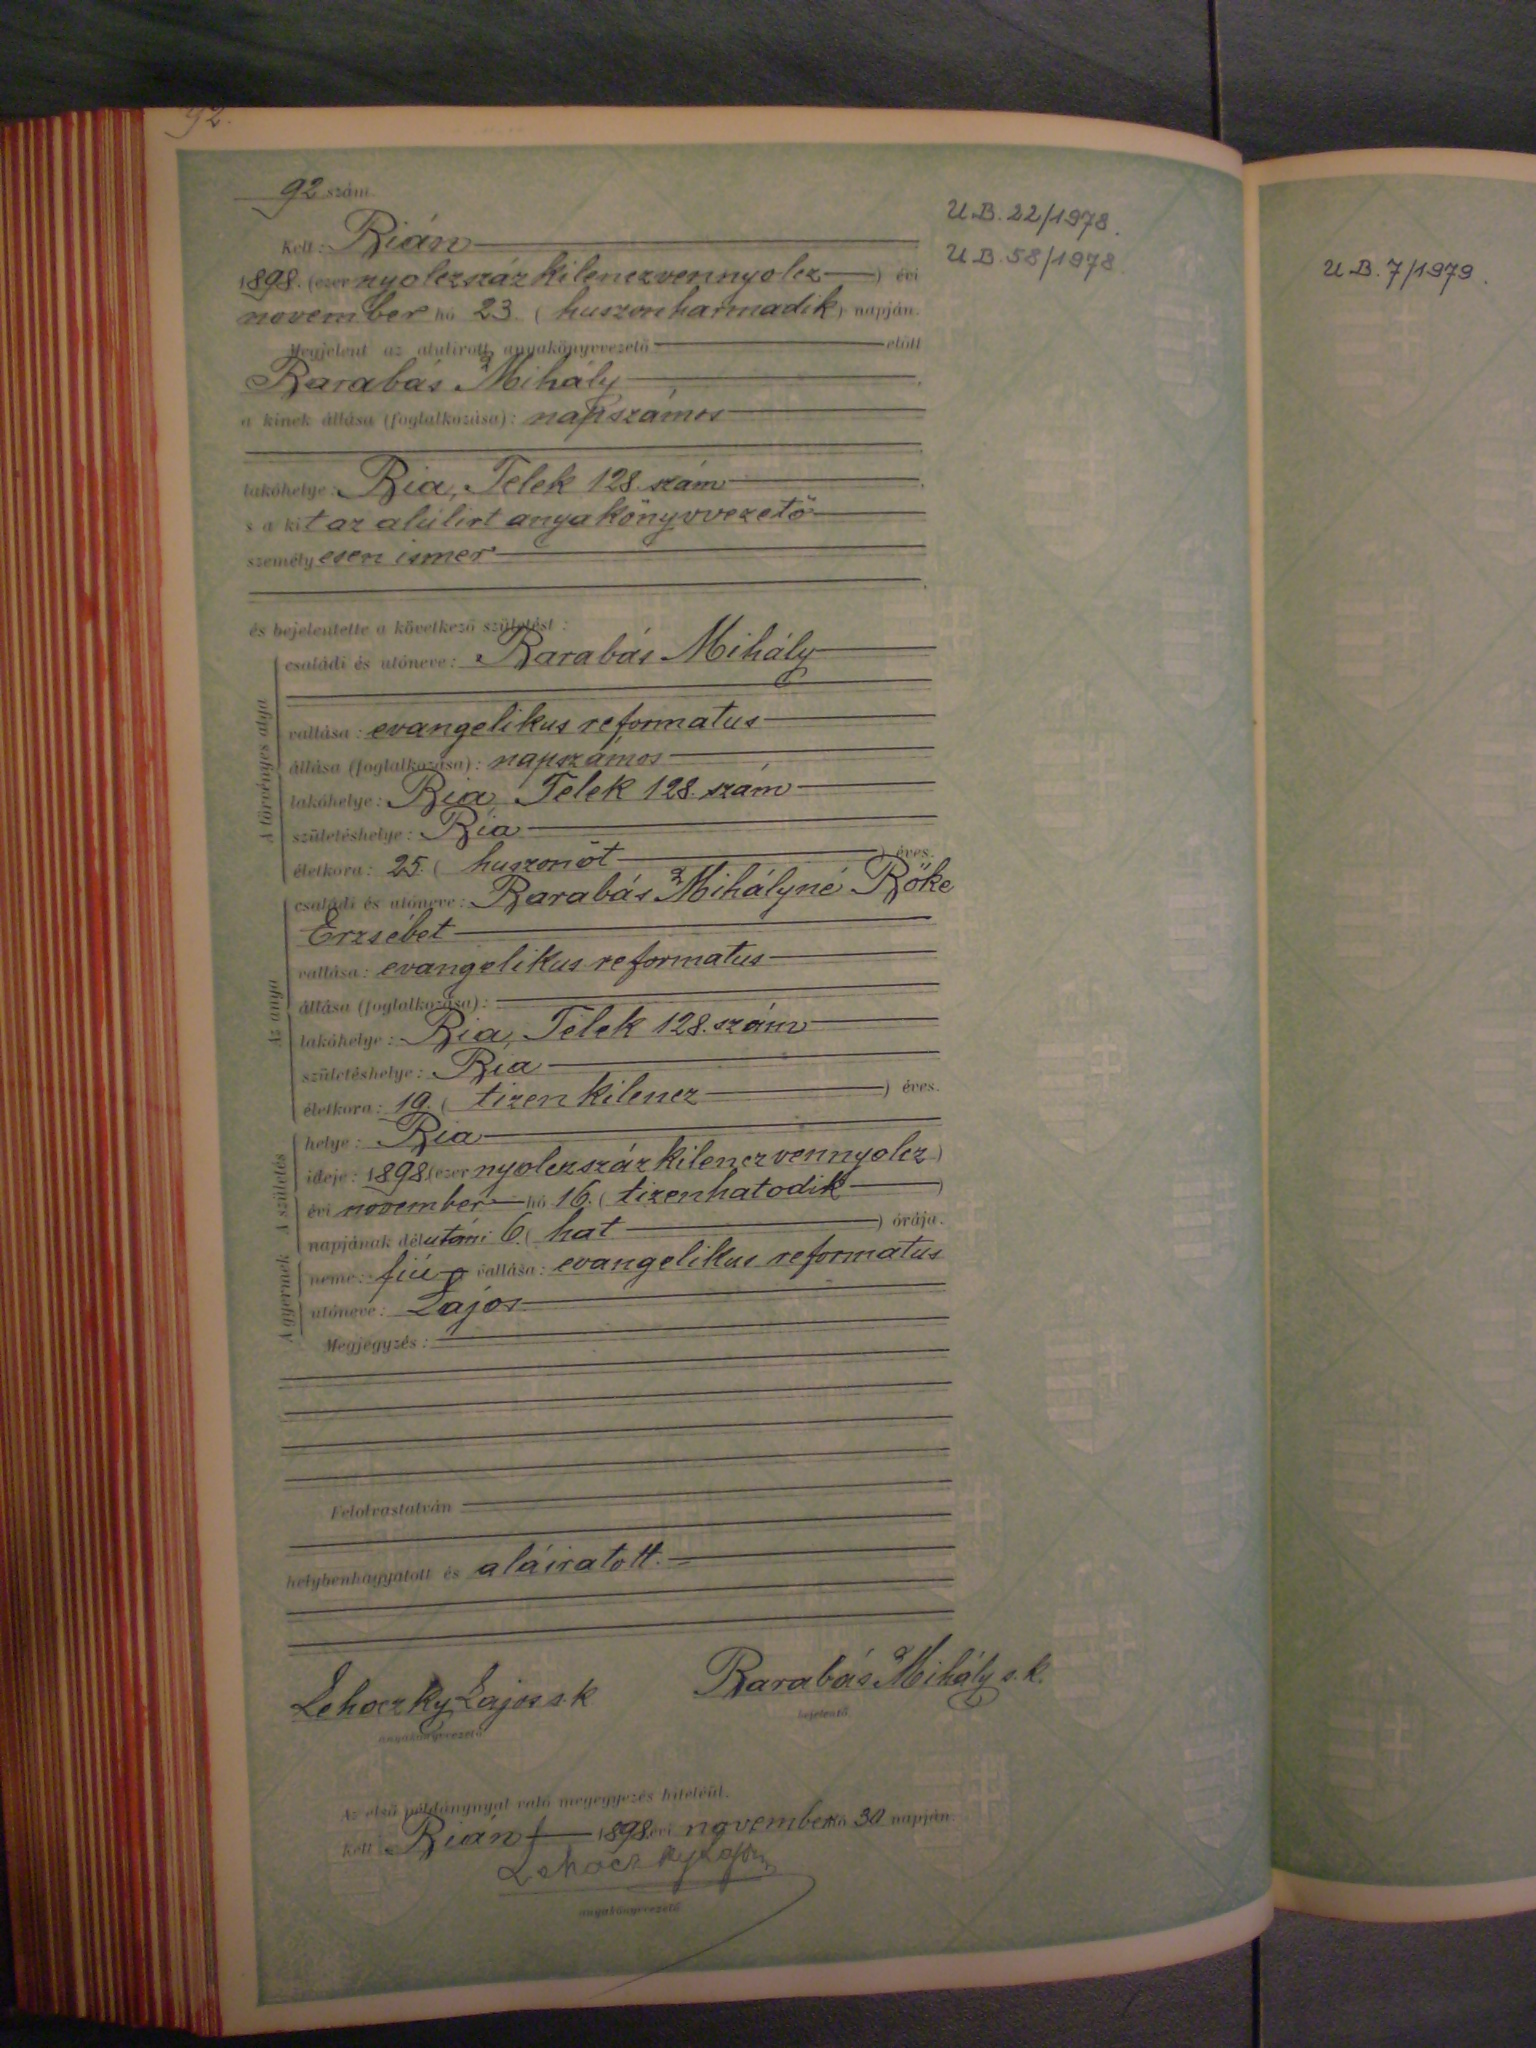 92.
92 szám
Kelt: Bián
1898. (ezer nyolczszáz kilenczvennyolcz) évi
november hó 23 (huszonharmadik) napján.
Megjelent az alulirott anyakönyvvezető előtt
Barabás Mihály
a kinek állása (foglalkozása): napszámos
lakóhelye: Bia, Telek 128. szám
s a kit az alúlirt anyakönyvvezető
személyesen ismer
és bejelentette a következő születést:
A törvényes atya
családi és utóneve: Barabás Mihály
vallása: evangelikus reformatus
állása (foglalkozása): napszámos
lakóhelye: Bia, Telek 128. szám
születéshelye: Bia
életkora: 25. (huszonöt) éves.
Az anya
családi és utóneve: Barabás Mihályné Bőke
Erzsébet
vallása: evangelikus reformatus
állása (foglalkozása):
lakóhelye: Bia, Telek 128. szám
születéshelye: Bia
életkora: 19. (tizenkilencz) éves.
A születés
helye: Bia
ideje: 1898. (ezer nyolczszáz kilenczvennyolcz)
évi november hó 16. (tizenhatodik)
napjának délutáni 6. (hat) órája.
A gyermek
neme: fiú vallása: evangelikus reformatus
utóneve: Lajos
Megjegyzés:
Felolvastatván
helybenhagyatott és aláiratott.
Lehoczky Lajos s. k
anyakönyvvezető
Barabás Mihály s. k.
bejelentő.
Az első példánynyal való megegyezés hiteléül.
Kelt Bián 1898. évi november hó 30 napján.
Lehoczky Lajos
anyakönyvvezető
U.B. 22/1978.
U.B. 58/1978
U.B. 7/1979.